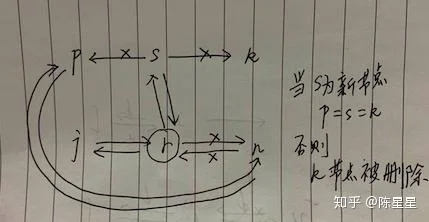 p s k
当 s 为新节点
p = s = k
j r n
否则
k 节点被删除
知乎 @陈星星